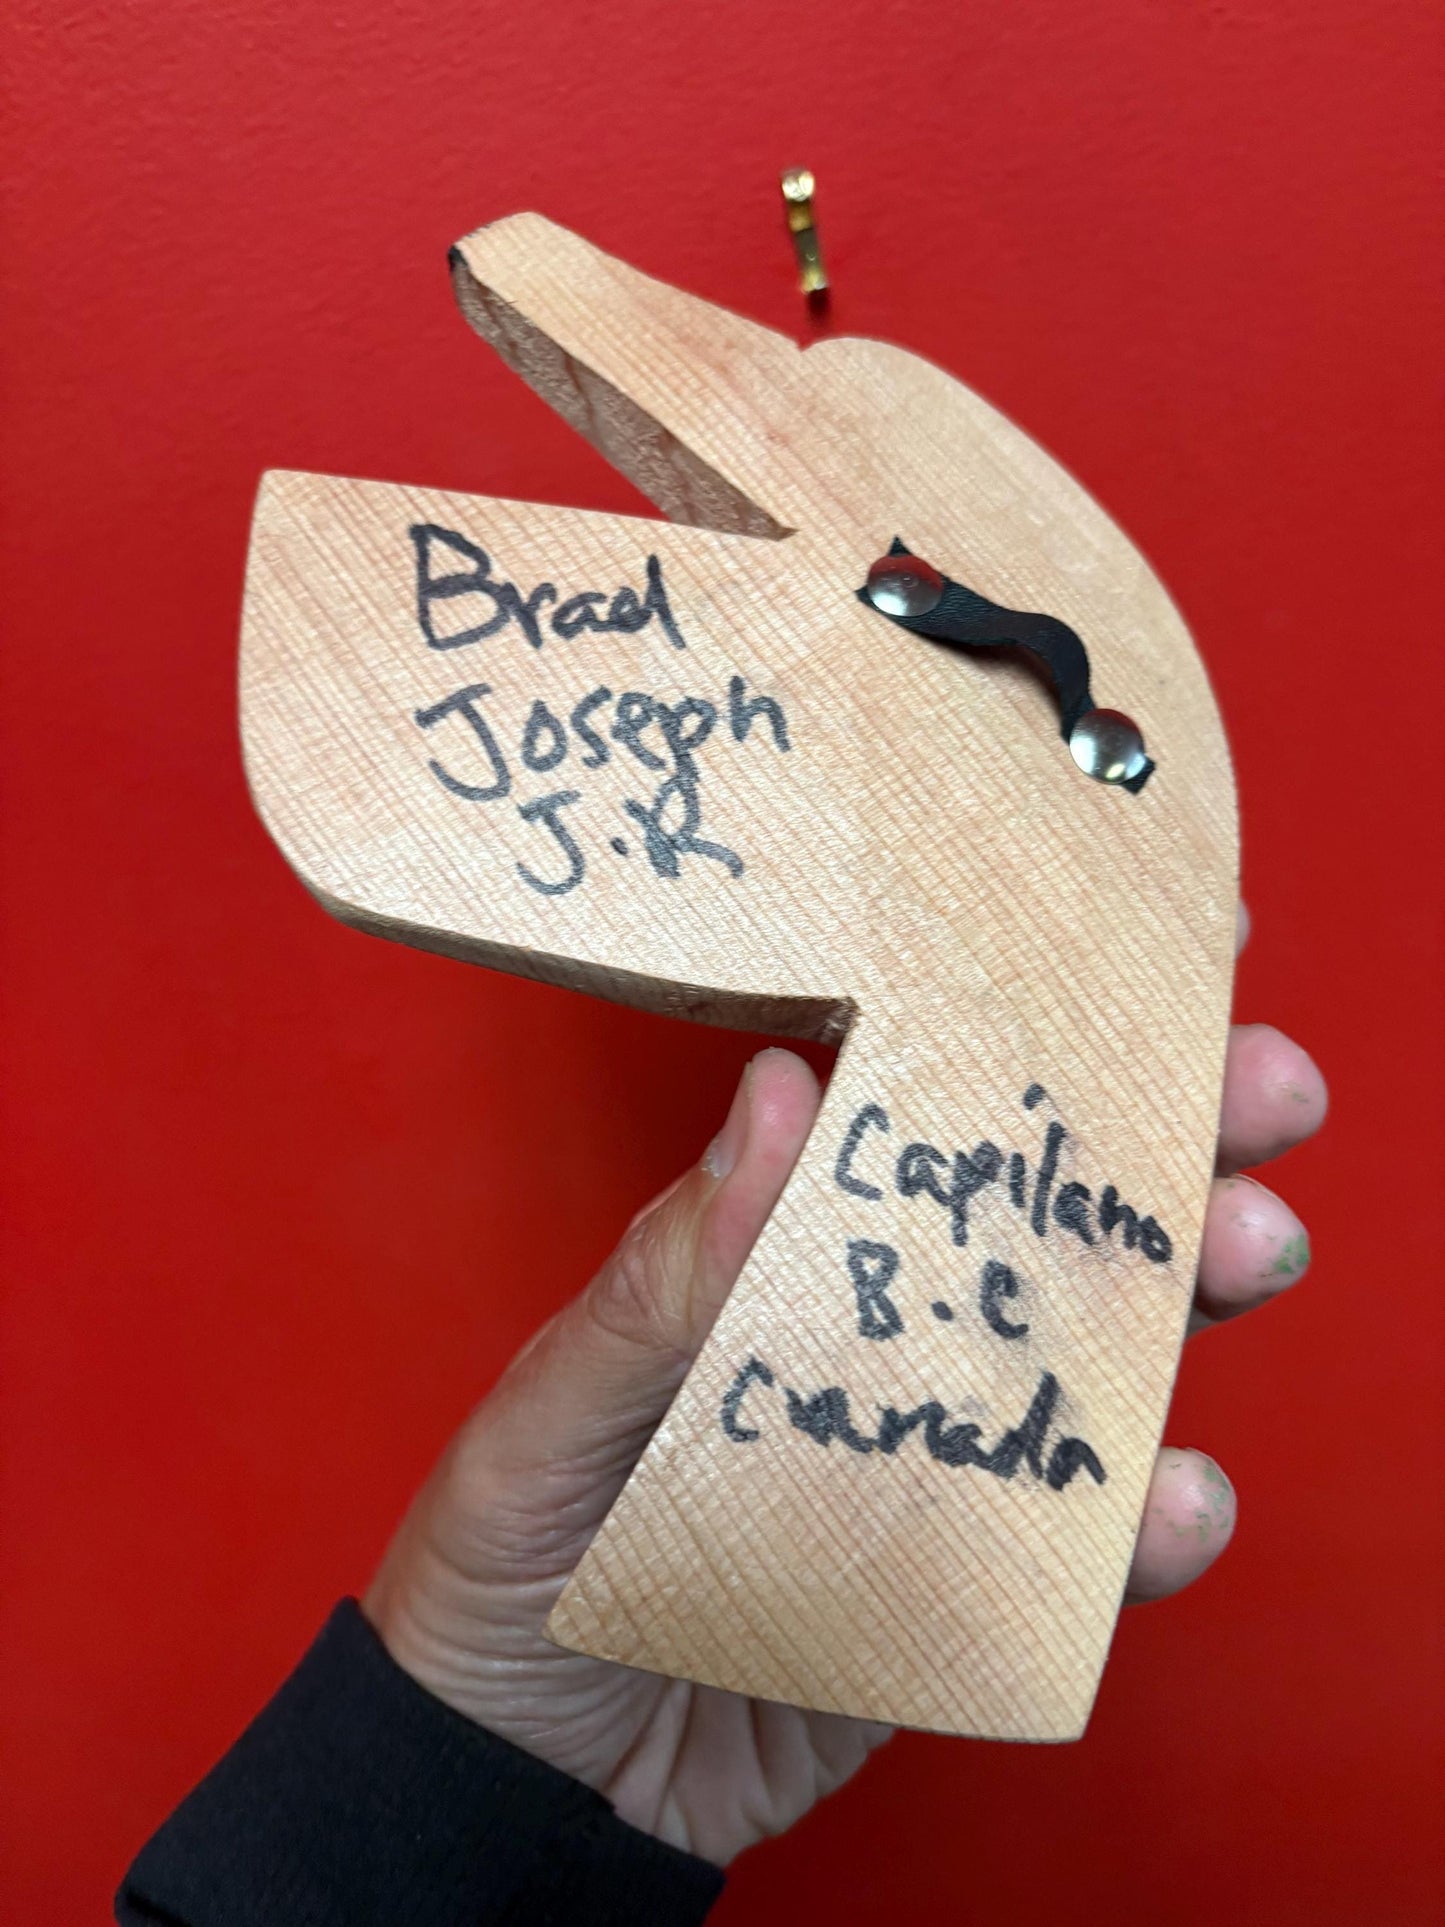 Brad
Joseph
J.R
Capilano
B.C
Cannada